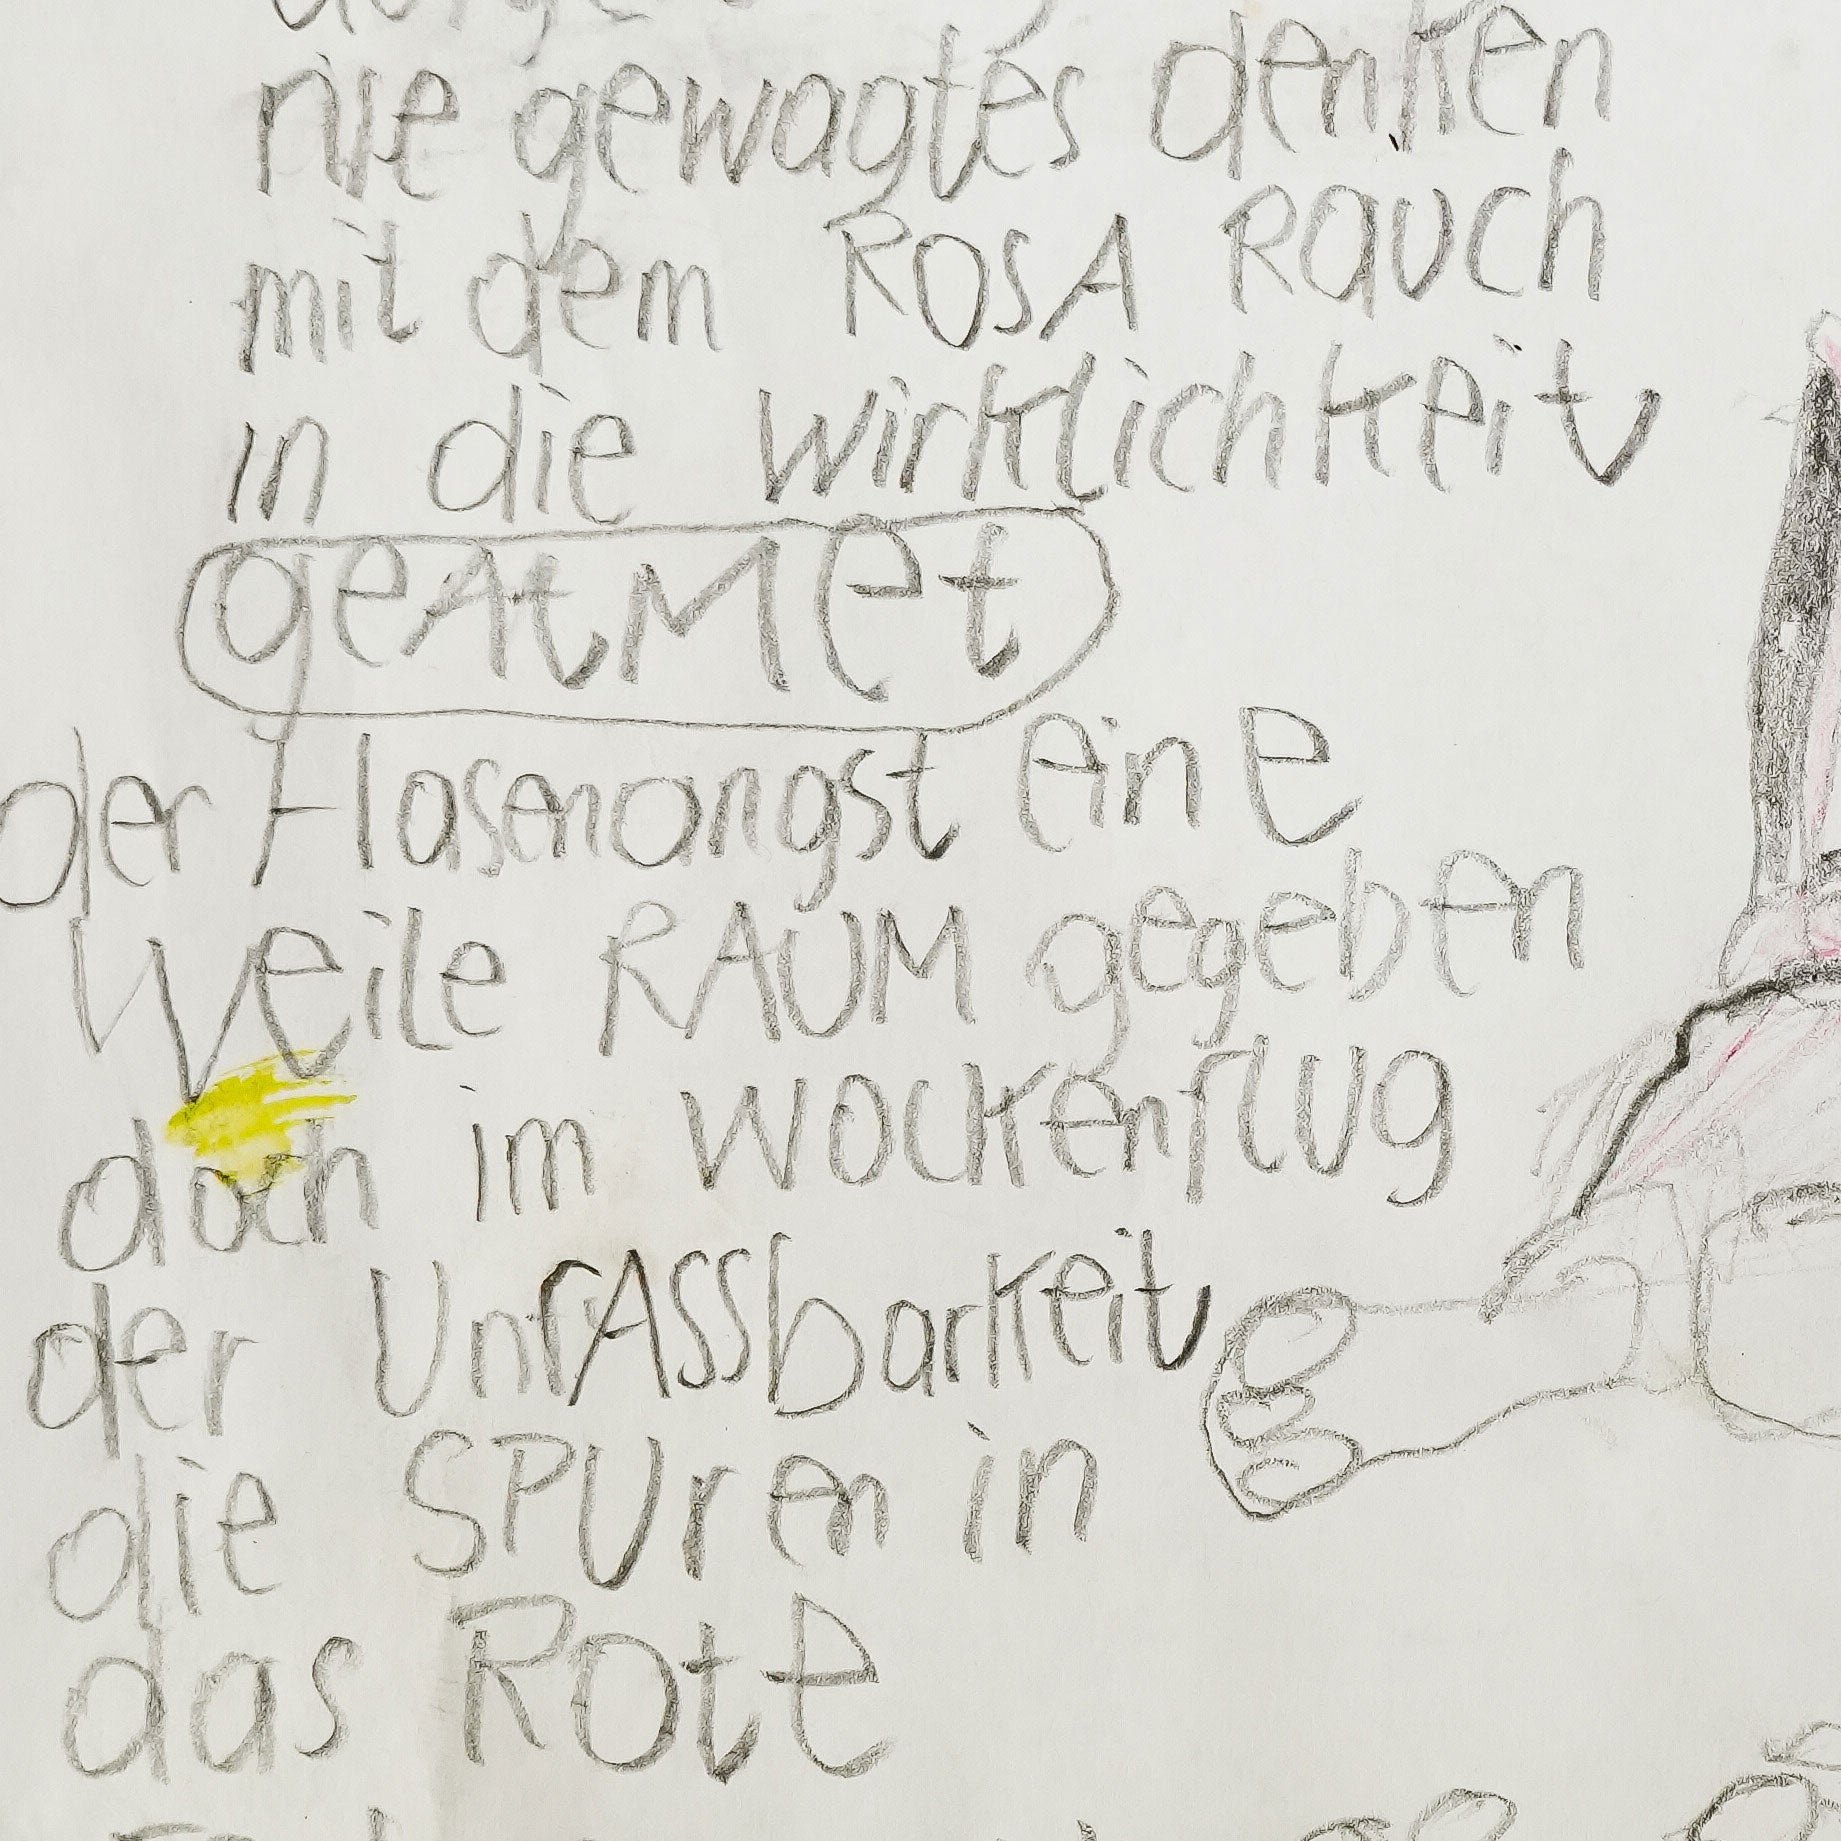 nie gewagtes denken
mit dem ROSA Rauch
in die wirklichkeit
geAtMet
der Hasenangst eine
Weile RAUM gegeben
doch im wockenflug
der UnfASSbarkeit
die SPUren in
das Rote